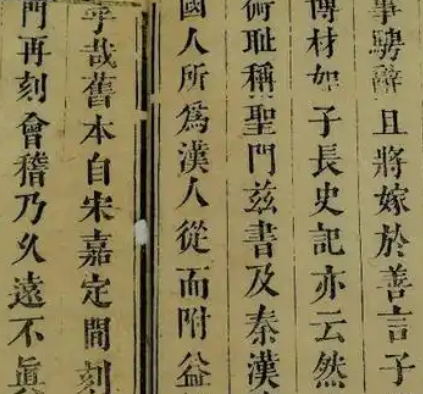 事騁辭且將嫁於善言子
博材如子長史記亦云然
術耻稱聖門兹書及秦漢
國人所爲漢人從而附益
乎哉舊本自宋嘉定間刻
門再刻會稽乃久遠不眞